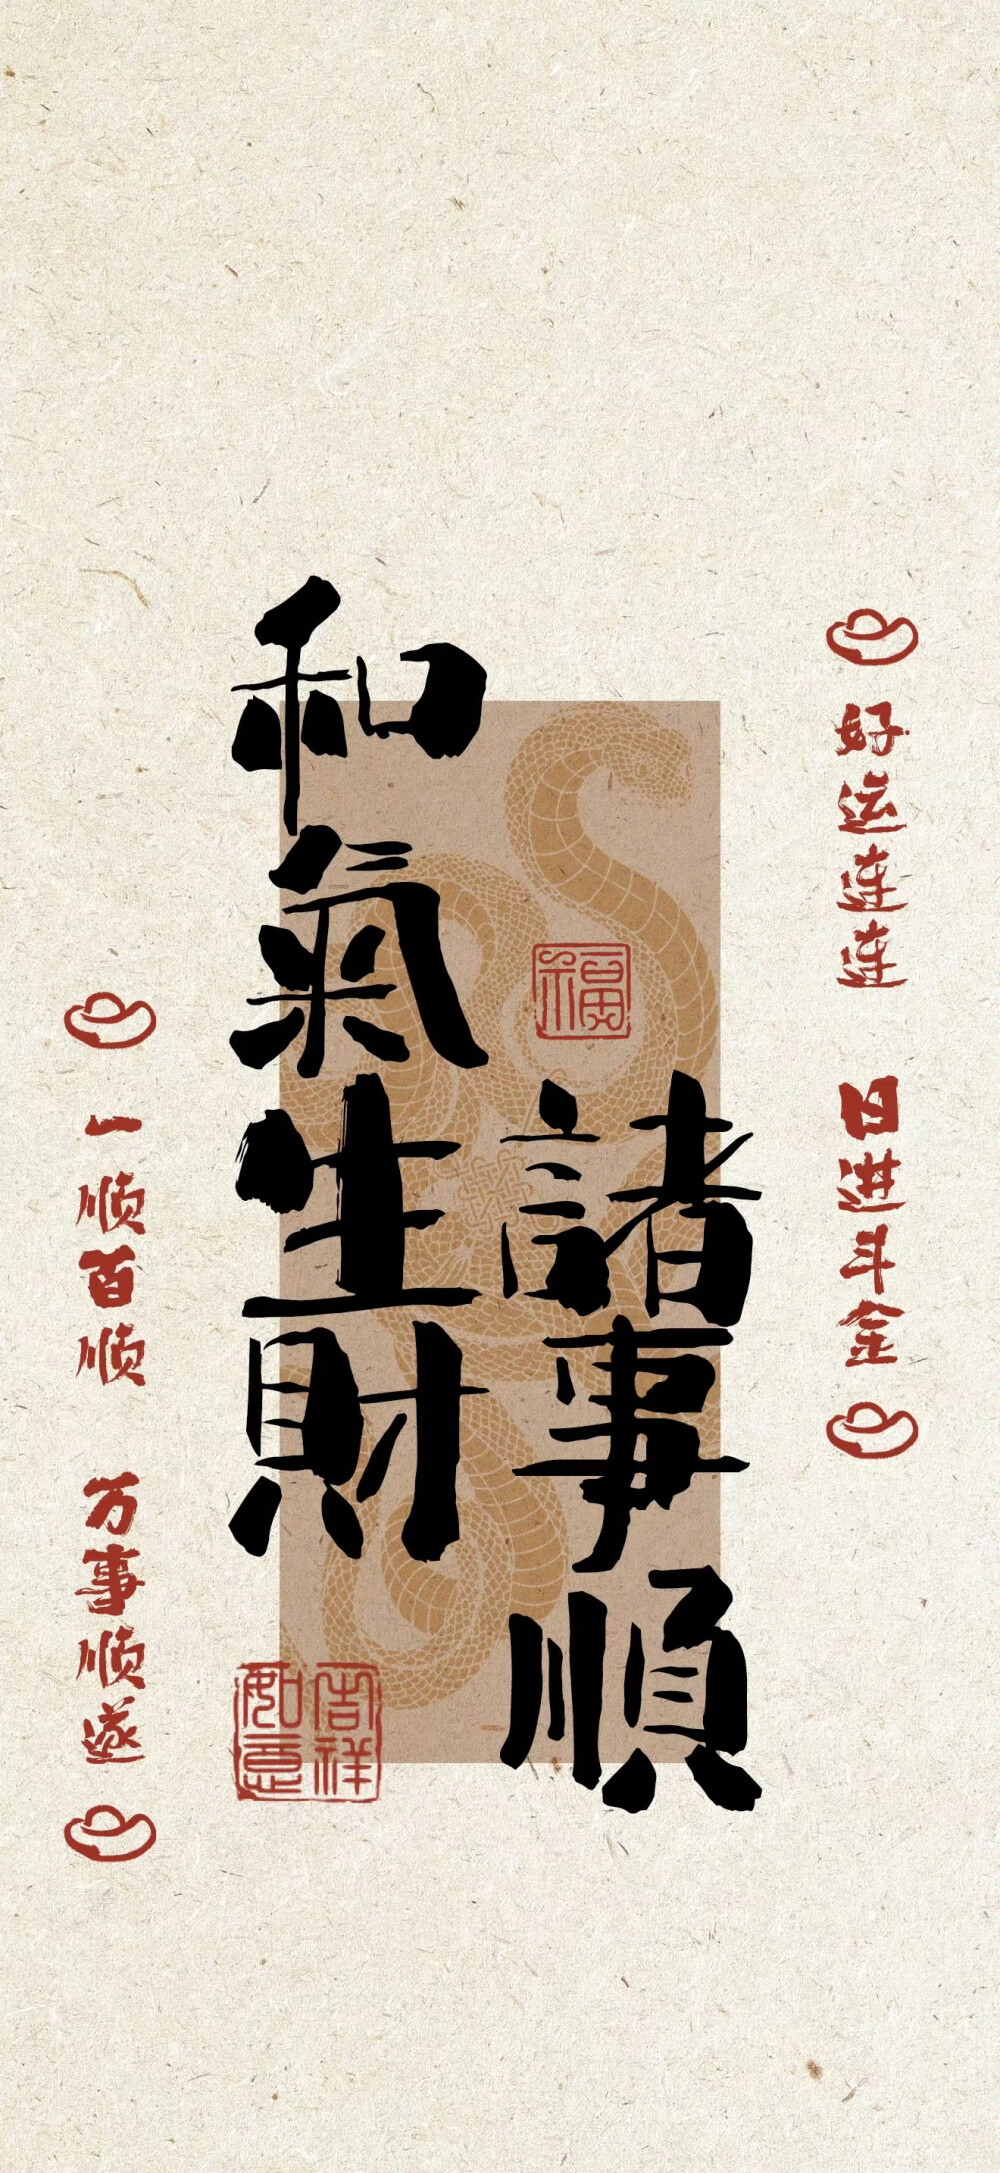 好运连连 日进斗金
諸事順
和氣生財
福
吉祥
如意
一顺百顺 万事顺遂